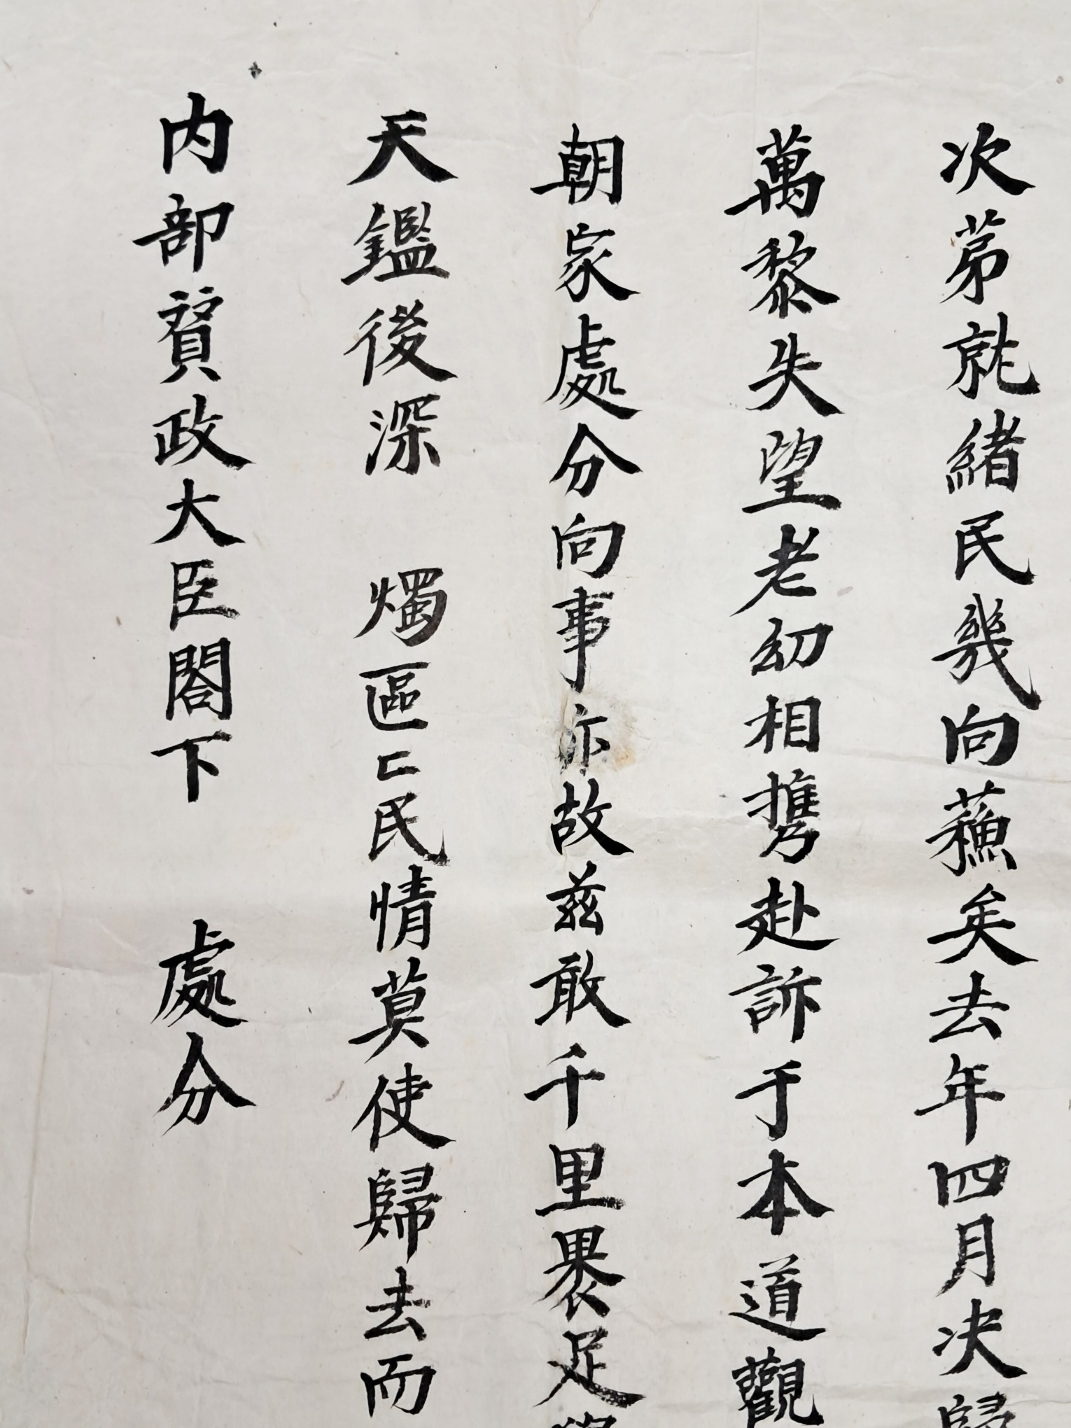 次苐就緒民幾向蘓矣去年四月决歸
萬黎失望老幼相携赴訴于本道觀
朝家處分向事亦故茲敢千里褁足
天鑑後深 燭區〻民情莫使歸去而
内部賛政大臣閤下 處分